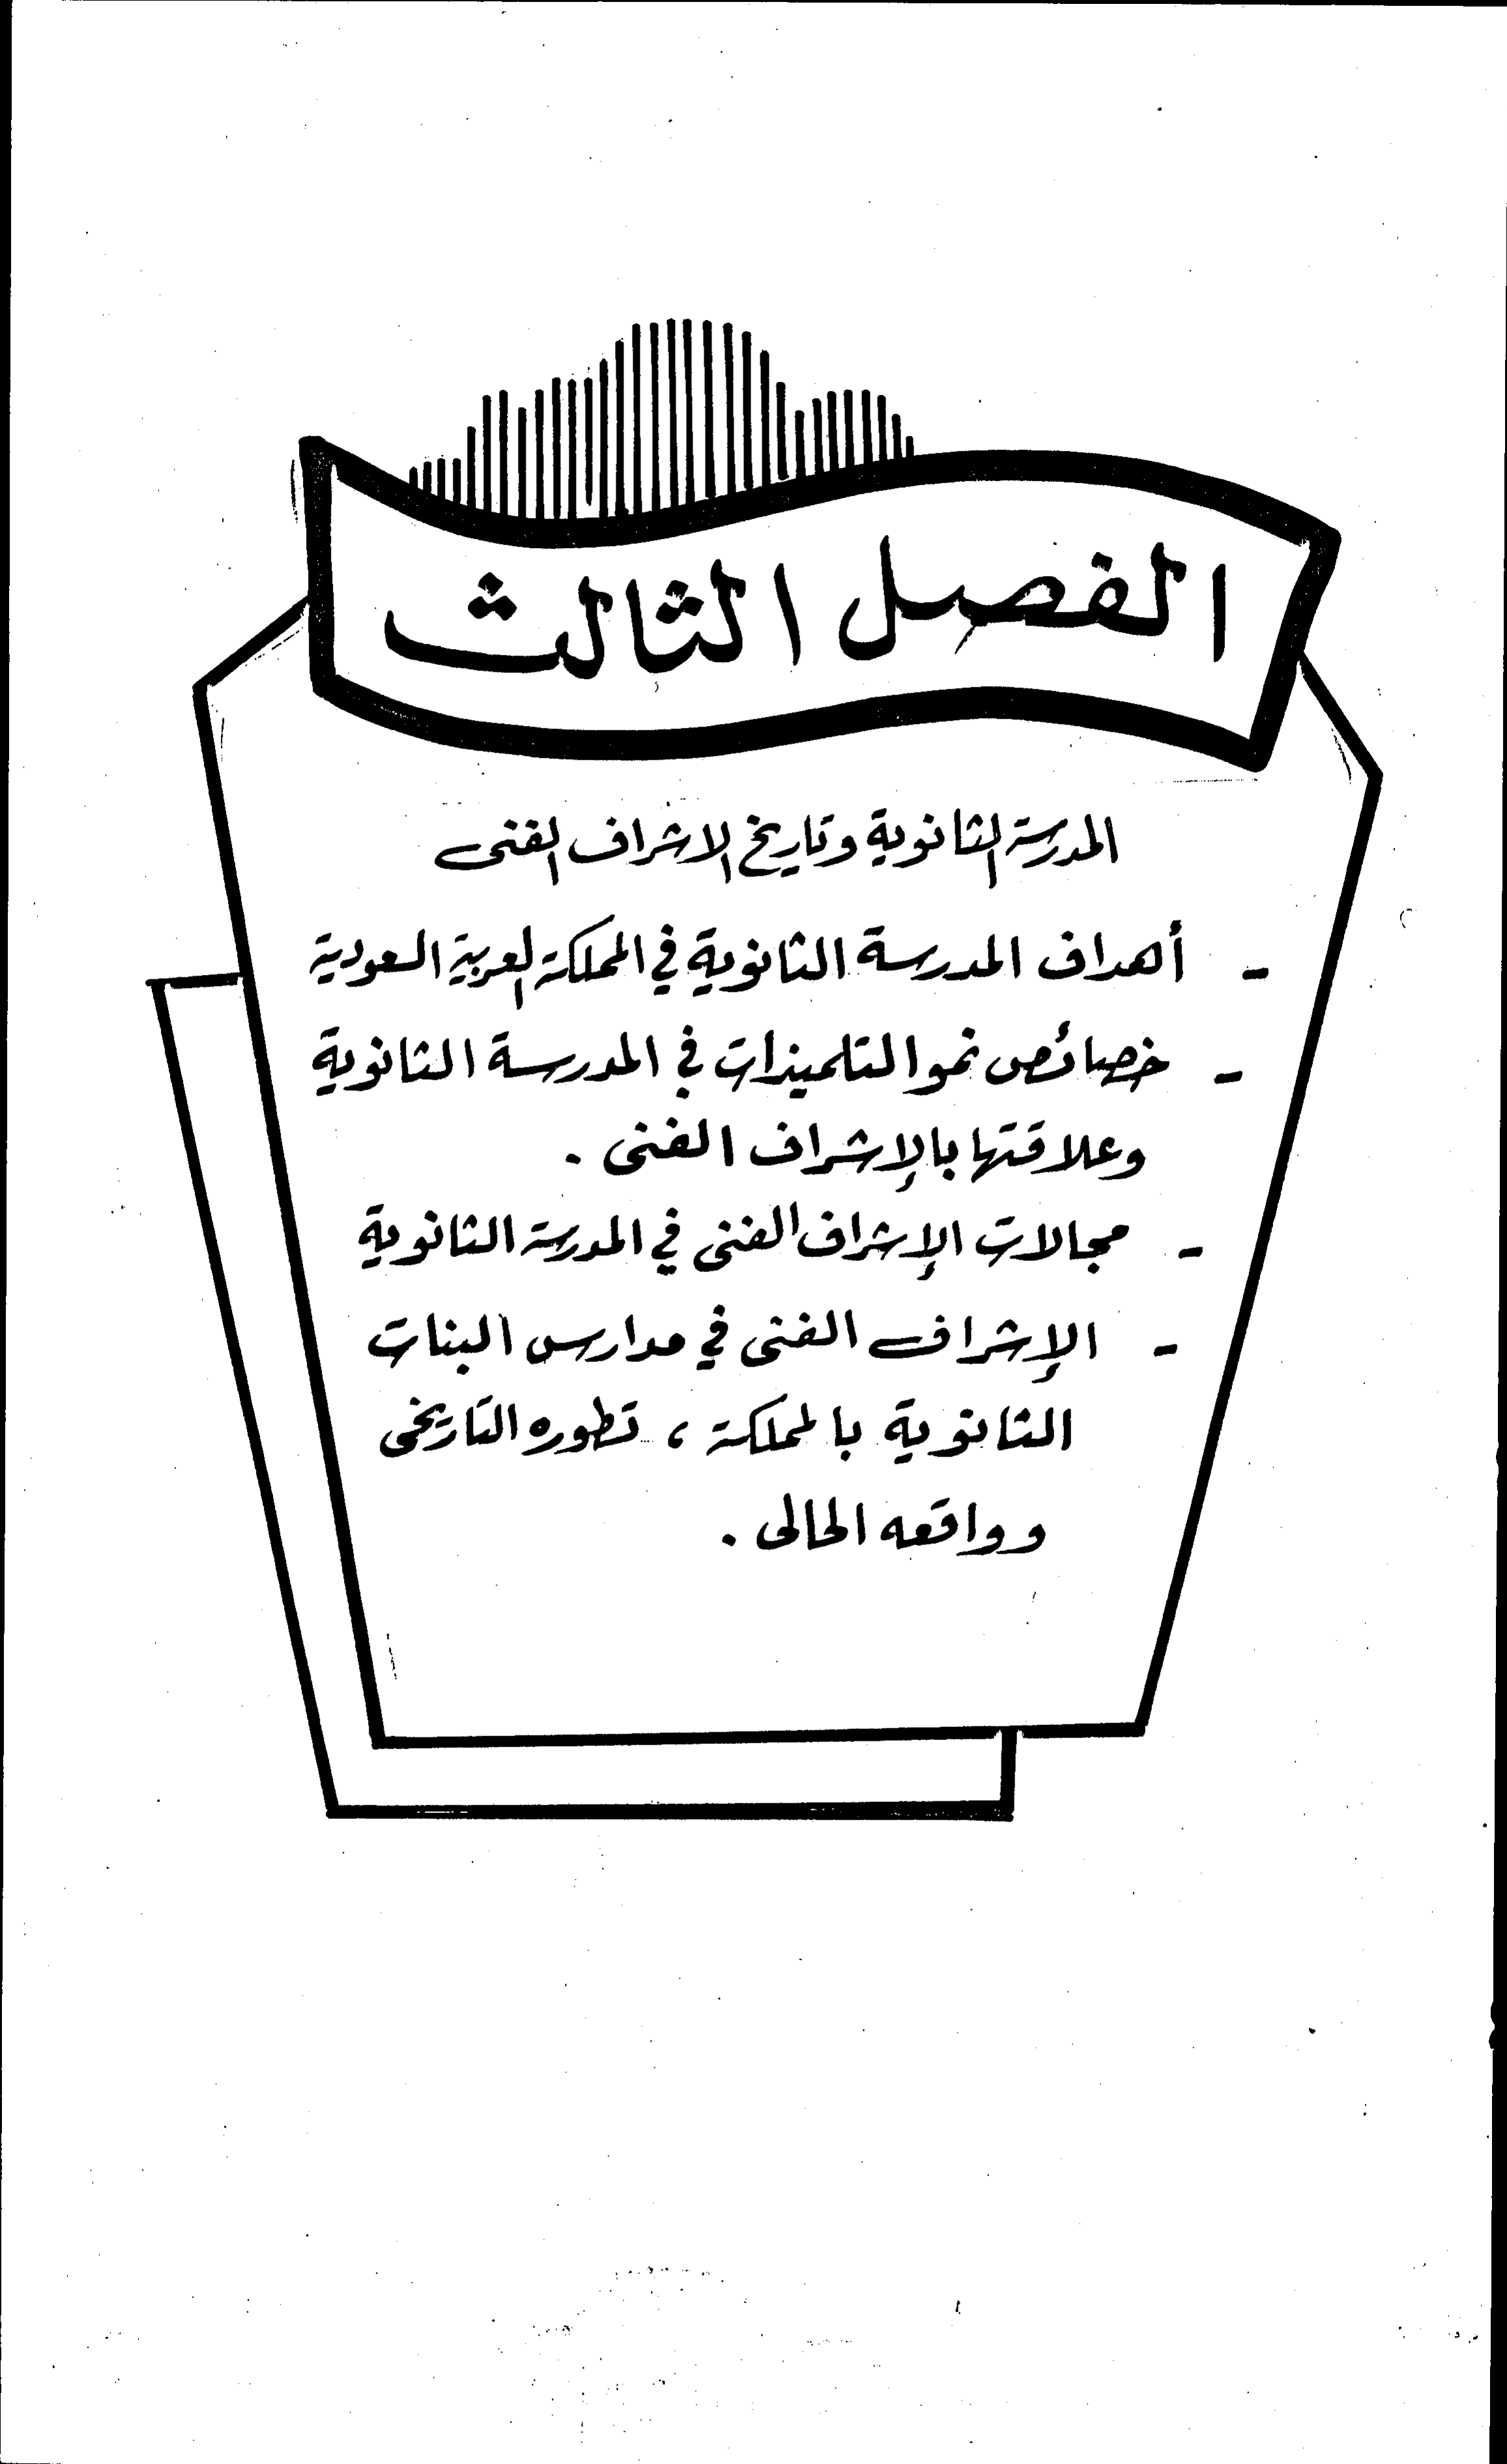 الفصل الثالث
المدرسة الثانوية وتاريخ الاشراف الفنى
- أهداف المدرسة الثانوية في المملكة العربية السعودية
- خصائص نمو التلميذات في المدرسة الثانوية
وعلاقتها بالإشراف الفنى .
- مجالات الإشراف الفنى في المدرسة الثانوية
- الإشراف الفنى في مدارس البنات
الثانوية بالمملكة ، تطوره التاريخى
وواقعه الحالى .